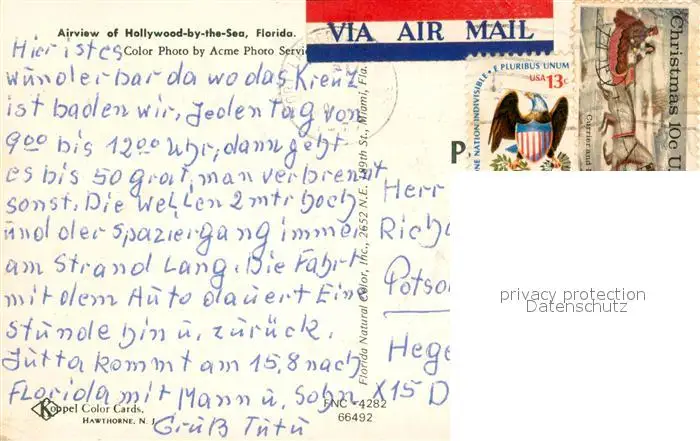 Airview of Hollywood-by-the-Sea, Florida.
Color Photo by Acme Photo Servi
VIA AIR MAIL
Hier ist es
wünderbar da wo das Kreuz
ist baden wir, Jeden tag von
9⁰⁰ bis 12⁰⁰ Uhr, dann geht
es bis 50 grat, man verbrennt
sonst. Die Wellen 2 mtr hoch
und der spaziergang immer
am Strand Lang. Die Fahrt
mit dem Auto dauert Ein
stunde hin u. zurück.
Jutta kommt am 15,8 nach
Florida mit Mann u. Sohn
Gruß Tutu
Koppel Color Cards,
HAWTHORNE, N. J.
FNC -4282
66492
Florida Natural Color, Inc., 2652 N.E. 189th St., Miami, Fla.
ONE NATION INDIVISIBLE • E PLURIBUS UNUM
USA 13c
Christmas 10c U
Currier and
P
Herr
Richa
Potso
Hege
X15 D
privacy protection
Datenschutz